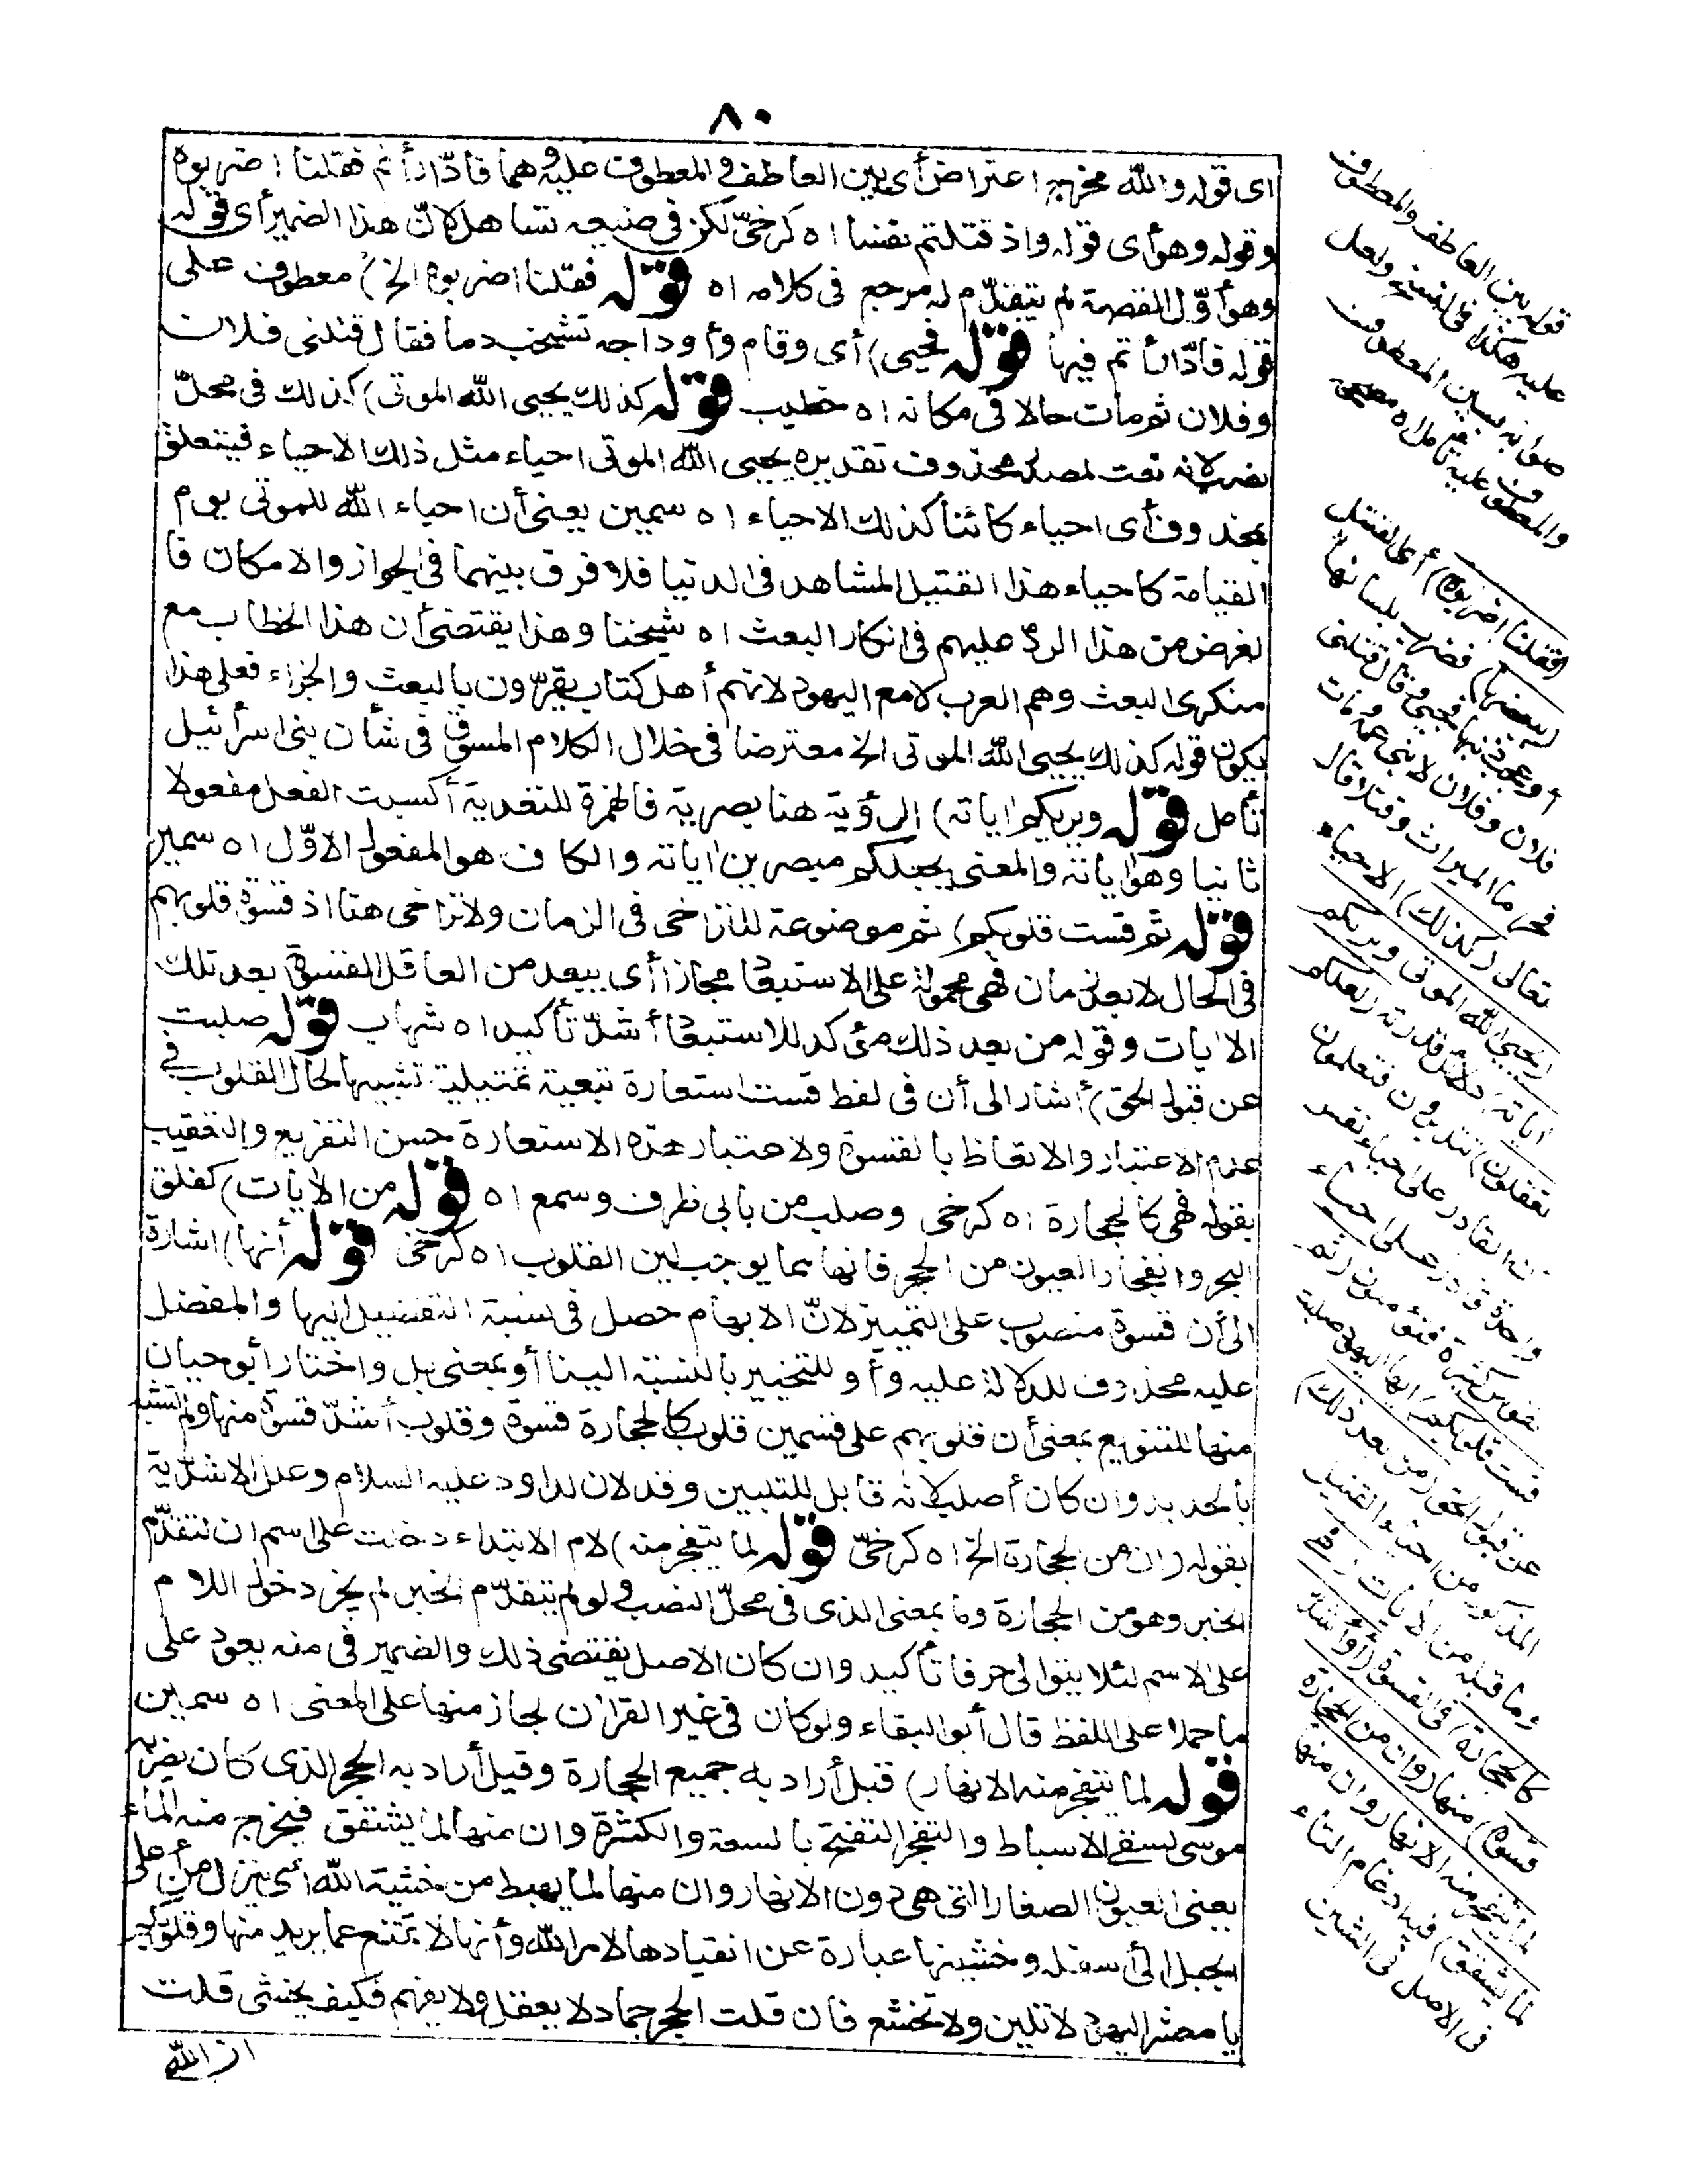 ٨٠
اى قوله والله مخرج اعتراض أى بين العاطف والمعطوف عليه وهما فادّارأتم فقلنا اضربوه
وقوله وهو أى قوله واذ قتلتم نفسا اه كرخىّ لكن فى صنيعه تساهل لانّ هذا الضمير أى قوله
وهو أوّل القصة لم يتقدّم له مرجع فى كلامه اه قوله فقلنا اضربوه الخ) معطوف على
قوله فادّارأتم فيها قوله فحيى) أى وقام وأوداجه تشخب دما فقال قتلنى فلان
وفلان ثم مات حالا فى مكانه اه خطيب قوله كذلك يحيى الله الموتى) كذلك فى محلّ
نصب لانه نعت لمصدر محذوف تقديره يحيى الله الموتى احياء مثل ذلك الاحياء فيتعلق
بمحذوف أى احياء كائنا كذلك الاحياء اه سمين يعنى أن احياء الله للموتى يوم
القيامة كاحياء هذا القتيل المشاهد فى الدنيا فلا فرق بينهما فى الجواز والامكان فا
لغرض من هذا الردّ عليهم فى انكار البعث اه شيخنا وهذا يقتضى أن هذا الخطاب مع
منكرى البعث وهم العرب لا مع اليهود لانهم أهل كتاب يقرّون بالبعث والجزاء فعلى هذا
يكون قوله كذلك يحيى الله الموتى الخ معترضا فى خلال الكلام المسوق فى شأن بنى اسرائيل
تأمل قوله ويريكم اياته) الرؤية هنا بصرية فالهمزة للتعدية أكسبت الفعل مفعولا
ثانيا وهو اياته والمعنى يجعلكم مبصرين اياته والكاف هو المفعول الاوّل اه سمين
قوله ثم قست قلوبكم) ثم موضوعة للتراخى فى الزمان ولا تراخى هنا اذ قسوة قلوبهم
فى الحال لا بعد زمان فهى محمولة على الاستبعاد مجازا أى يبعد من العاقل القسوة بعد تلك
الايات وقوله من بعد ذلك مؤكد للاستبعاد أشدّ تأكيد اه شهاب قوله صلبت
عن قبول الحق) أشار الى أن فى لفظ قست استعارة تبعية تمثيلية تشبيها لحال القلوب فى
عدم الاعتبار والاتعاظ بالقسوة ولاعتبار هذه الاستعارة حسن التفريع والتعقيب
بقوله فهى كالحجارة اه كرخى وصلب من بابى ظرف وسمع اه قوله من الايات) كفلق
البحر وانفجار العيون من الحجر فانها مما يوجب لين القلوب اه كرخى قوله أنها) اشارة
الى أن قسوة منصوب على التمييز لانّ الابهام حصل فى نسبة التفضيل اليها والمفضل
عليه محذوف للدلالة عليه وأو للتخيير بالنسبة الينا أو بمعنى بل واختار أبو حيان
منها للتنويع بمعنى أن قلوبهم على قسمين قلوب كالحجارة قسوة وقلوب أشدّ قسوة منها ولم تشبه
بالحديد وان كان أصلب لانه قابل للتليين وقد لان لداود عليه السلام وعلل الاشدّية
بقوله وان من الحجارة الخ اه كرخىّ قوله لما يتفجر منه) لام الابتداء دخلت على اسم ان لتقدّم
الخبر وهو من الحجارة وما بمعنى الذى فى محلّ النصب ولو لم يتقدّم الخبر لم يجز دخول اللام
على الاسم لئلا يتوالى حرفا تأكيد وان كان الاصل يقتضى ذلك والضمير فى منه يعود على
ما حملا على اللفظ قال أبو البقاء ولو كان فى غير القران لجاز منها على المعنى اه سمين
قوله لما يتفجر منه الانهار) قيل أراد به جميع الحجارة وقيل أراد به الحجر الذى كان يضربه
موسى لسقى الاسباط والتفجر التفتح بالسعة والكثرة وان منها لما يشقق فيخرج منه الماء
يعنى العيون الصغار التى هى دون الانهار وان منها لما يهبط من خشية الله أى ينزل من أعلى
الجبل الى أسفله وخشيتها عبارة عن انقيادها لامر الله وأنها لا تمتنع عما يريد منها وقلوبكم
يا معشر اليهود لا تلين ولا تخشع فان قلت الحجر جماد لا يعقل ولا يفهم فكيف يخشى قلت
ان الله
قوله بين العاطف والمعطوف
عليه هكذا فى النسخ ولعل
صوابه بين المعطوف
والمعطوف عليه تأمل اه مصححه
(فقلنا اضربوه) أى القتيل
(ببعضها) فضرب بلسانها
أو عجب ذنبها فحيى وقال قتلنى
فلان وفلان لابنى عمه ومات
فحرما الميراث وقتلا قال
تعالى (كذلك) الاحياء
(يحيى الله الموتى ويريكم
اياته) دلائل قدرته (لعلكم
تعقلون) تتدبرون فتعلمون
أن القادر على احياء نفس
واحدة قادر على احياء
نفوس كثيرة فتؤمنون (ثم
قست قلوبكم) أيها اليهود صلبت
عن قبول الحق (من بعد ذلك)
المذكور من احياء القتيل
وما قبله من الايات (فهى
كالحجارة) فى القسوة (أو أشدّ
قسوة) منها (وان من الحجارة
لما يتفجر منه الانهار وان منها
لما يشقق) فيه ادغام التاء
فى الاصل فى الشين